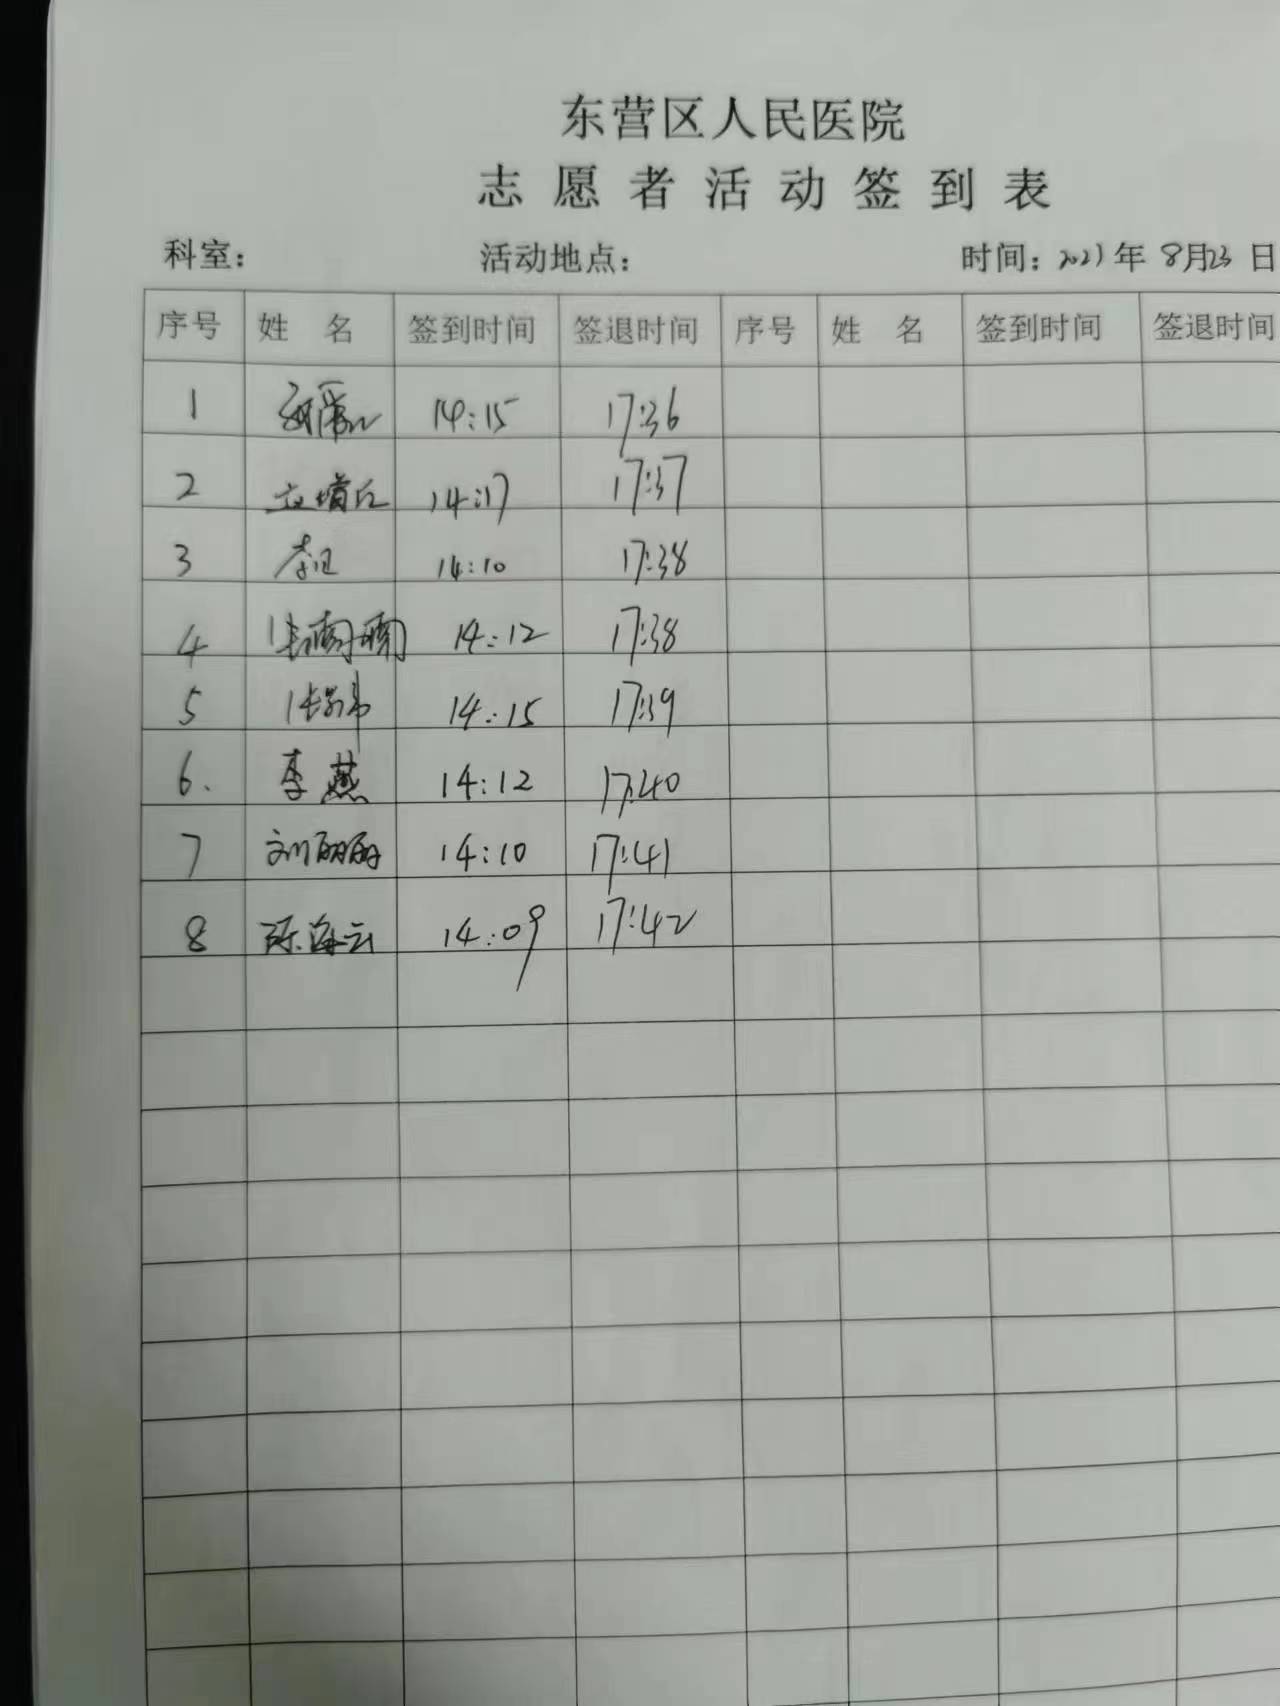 东营区人民医院
志愿者活动签到表
科室： 活动地点： 时间：2023年 8月23日
序号 姓 名 签到时间 签退时间 序号 姓 名 签到时间 签退时间
1 14:15 17:36
2 14:17 17:37
3 14:10 17:38
4 张 14:12 17:38
5 张 14:15 17:39
6. 李燕 14:12 17:40
7 刘丽丽 14:10 17:41
8 陈海云 14:09 17:42